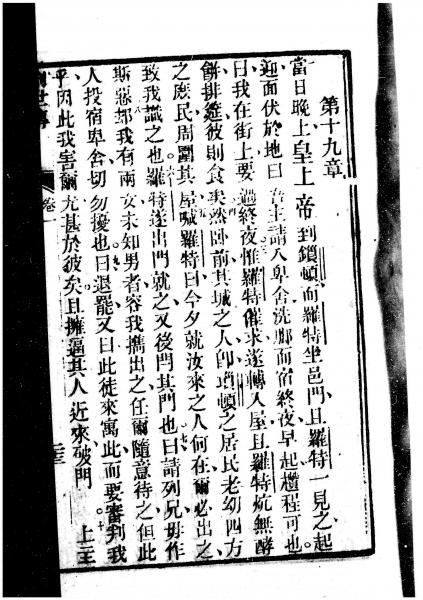 第十九章
當日晚上皇上帝到鎖頓而羅特坐邑門且羅特一見之起
迎面伏於地曰吾主請入卑舍洗脚而宿終夜早起趲程可也
曰我在街上要過終夜惟羅特催求遂轉入屋且羅特炕無酵
餅排筵彼則食矣然卧前其城之人卽瑣頓之居民老幼四方
之庶民周圍其屋喊羅特曰今夕就汝來之人何在爾必出之
致我識之也羅特遂出門就之又後閂其門也曰請列兄毋作
斯惡卻我有兩女未知男者容我攜出之任爾隨意待之但此
人投宿卑舍切勿擾也曰退罷又曰此徒來寓此而要審判我
乎因此我害爾尤甚於彼矣且擁逼其人近來破門 上主
世傳 卷一